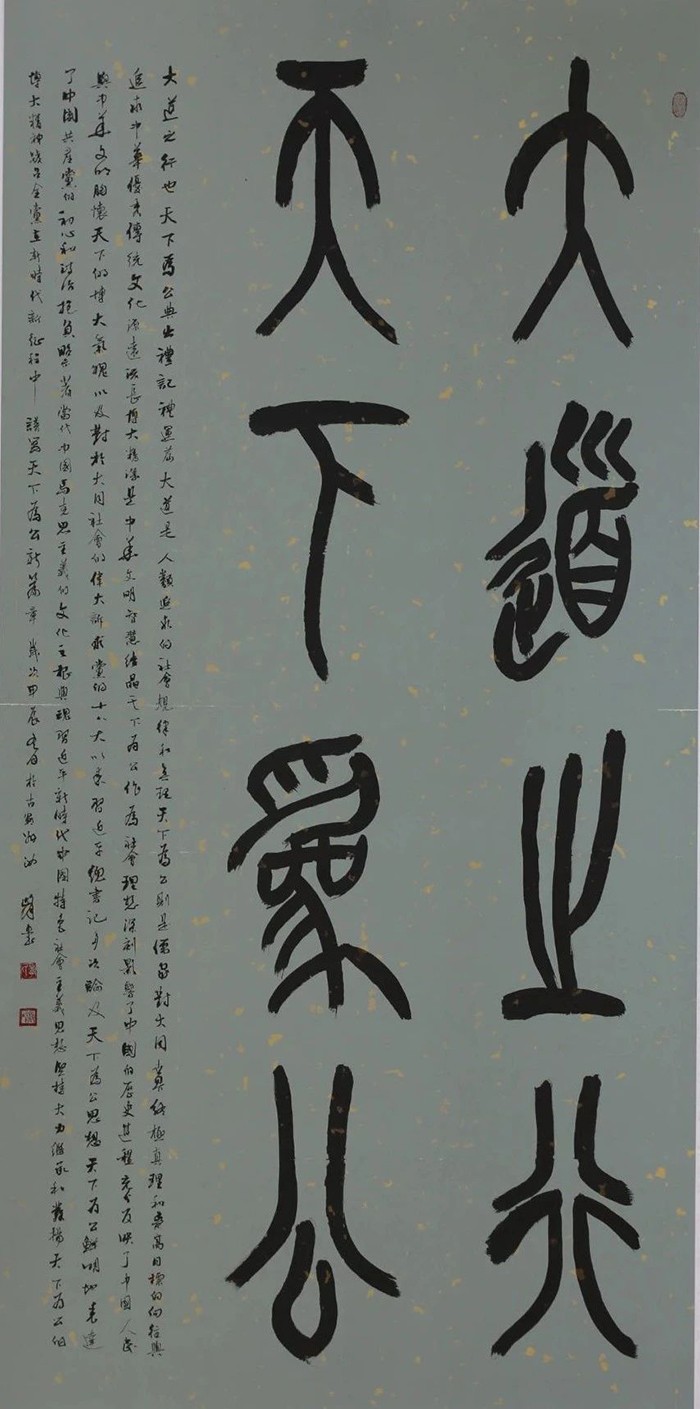 大道之行
天下為公
大道之行也天下為公典出禮記禮運篇大道是人類追求的社會規律和真理天下為公則是儒家對大同真終極真理和崇高目標的向往與
追求中華優秀傳統文化源遠流長博大精深是中華文明智慧結晶天下為公作為社會理想深刻影響了中國的歷史進程充分反映了中國人民
與中華文明胸懷天下的博大氣魄以及對於大同社會的偉大訴求黨的十八大以來習近平總書記多次論及天下為公思想天下為公鮮明地表達
了中國共產黨的初心和政治抱負昭示着當代中國馬克思主義的文化主根與魂習近平新時代中國特色社會主義思想堅持大力繼承和發揚天下為公的
博大精神號召全黨在新時代新征程中譜寫天下為公新篇章歲次甲辰春日於古